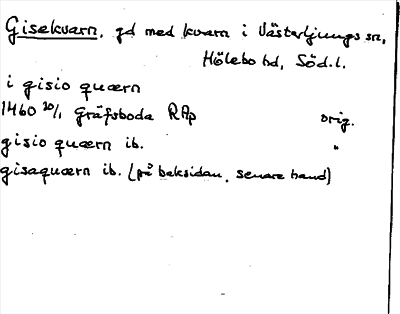 Gisekvarn, gd med kvarn i Västerljungs sn,
Hölebo hd, Söd.l.
i gisio quærn
1460 20/1 Gräfsboda RAp orig.
gisio quærn ib. "
gisaquærn ib. (på baksidan, senare hand)